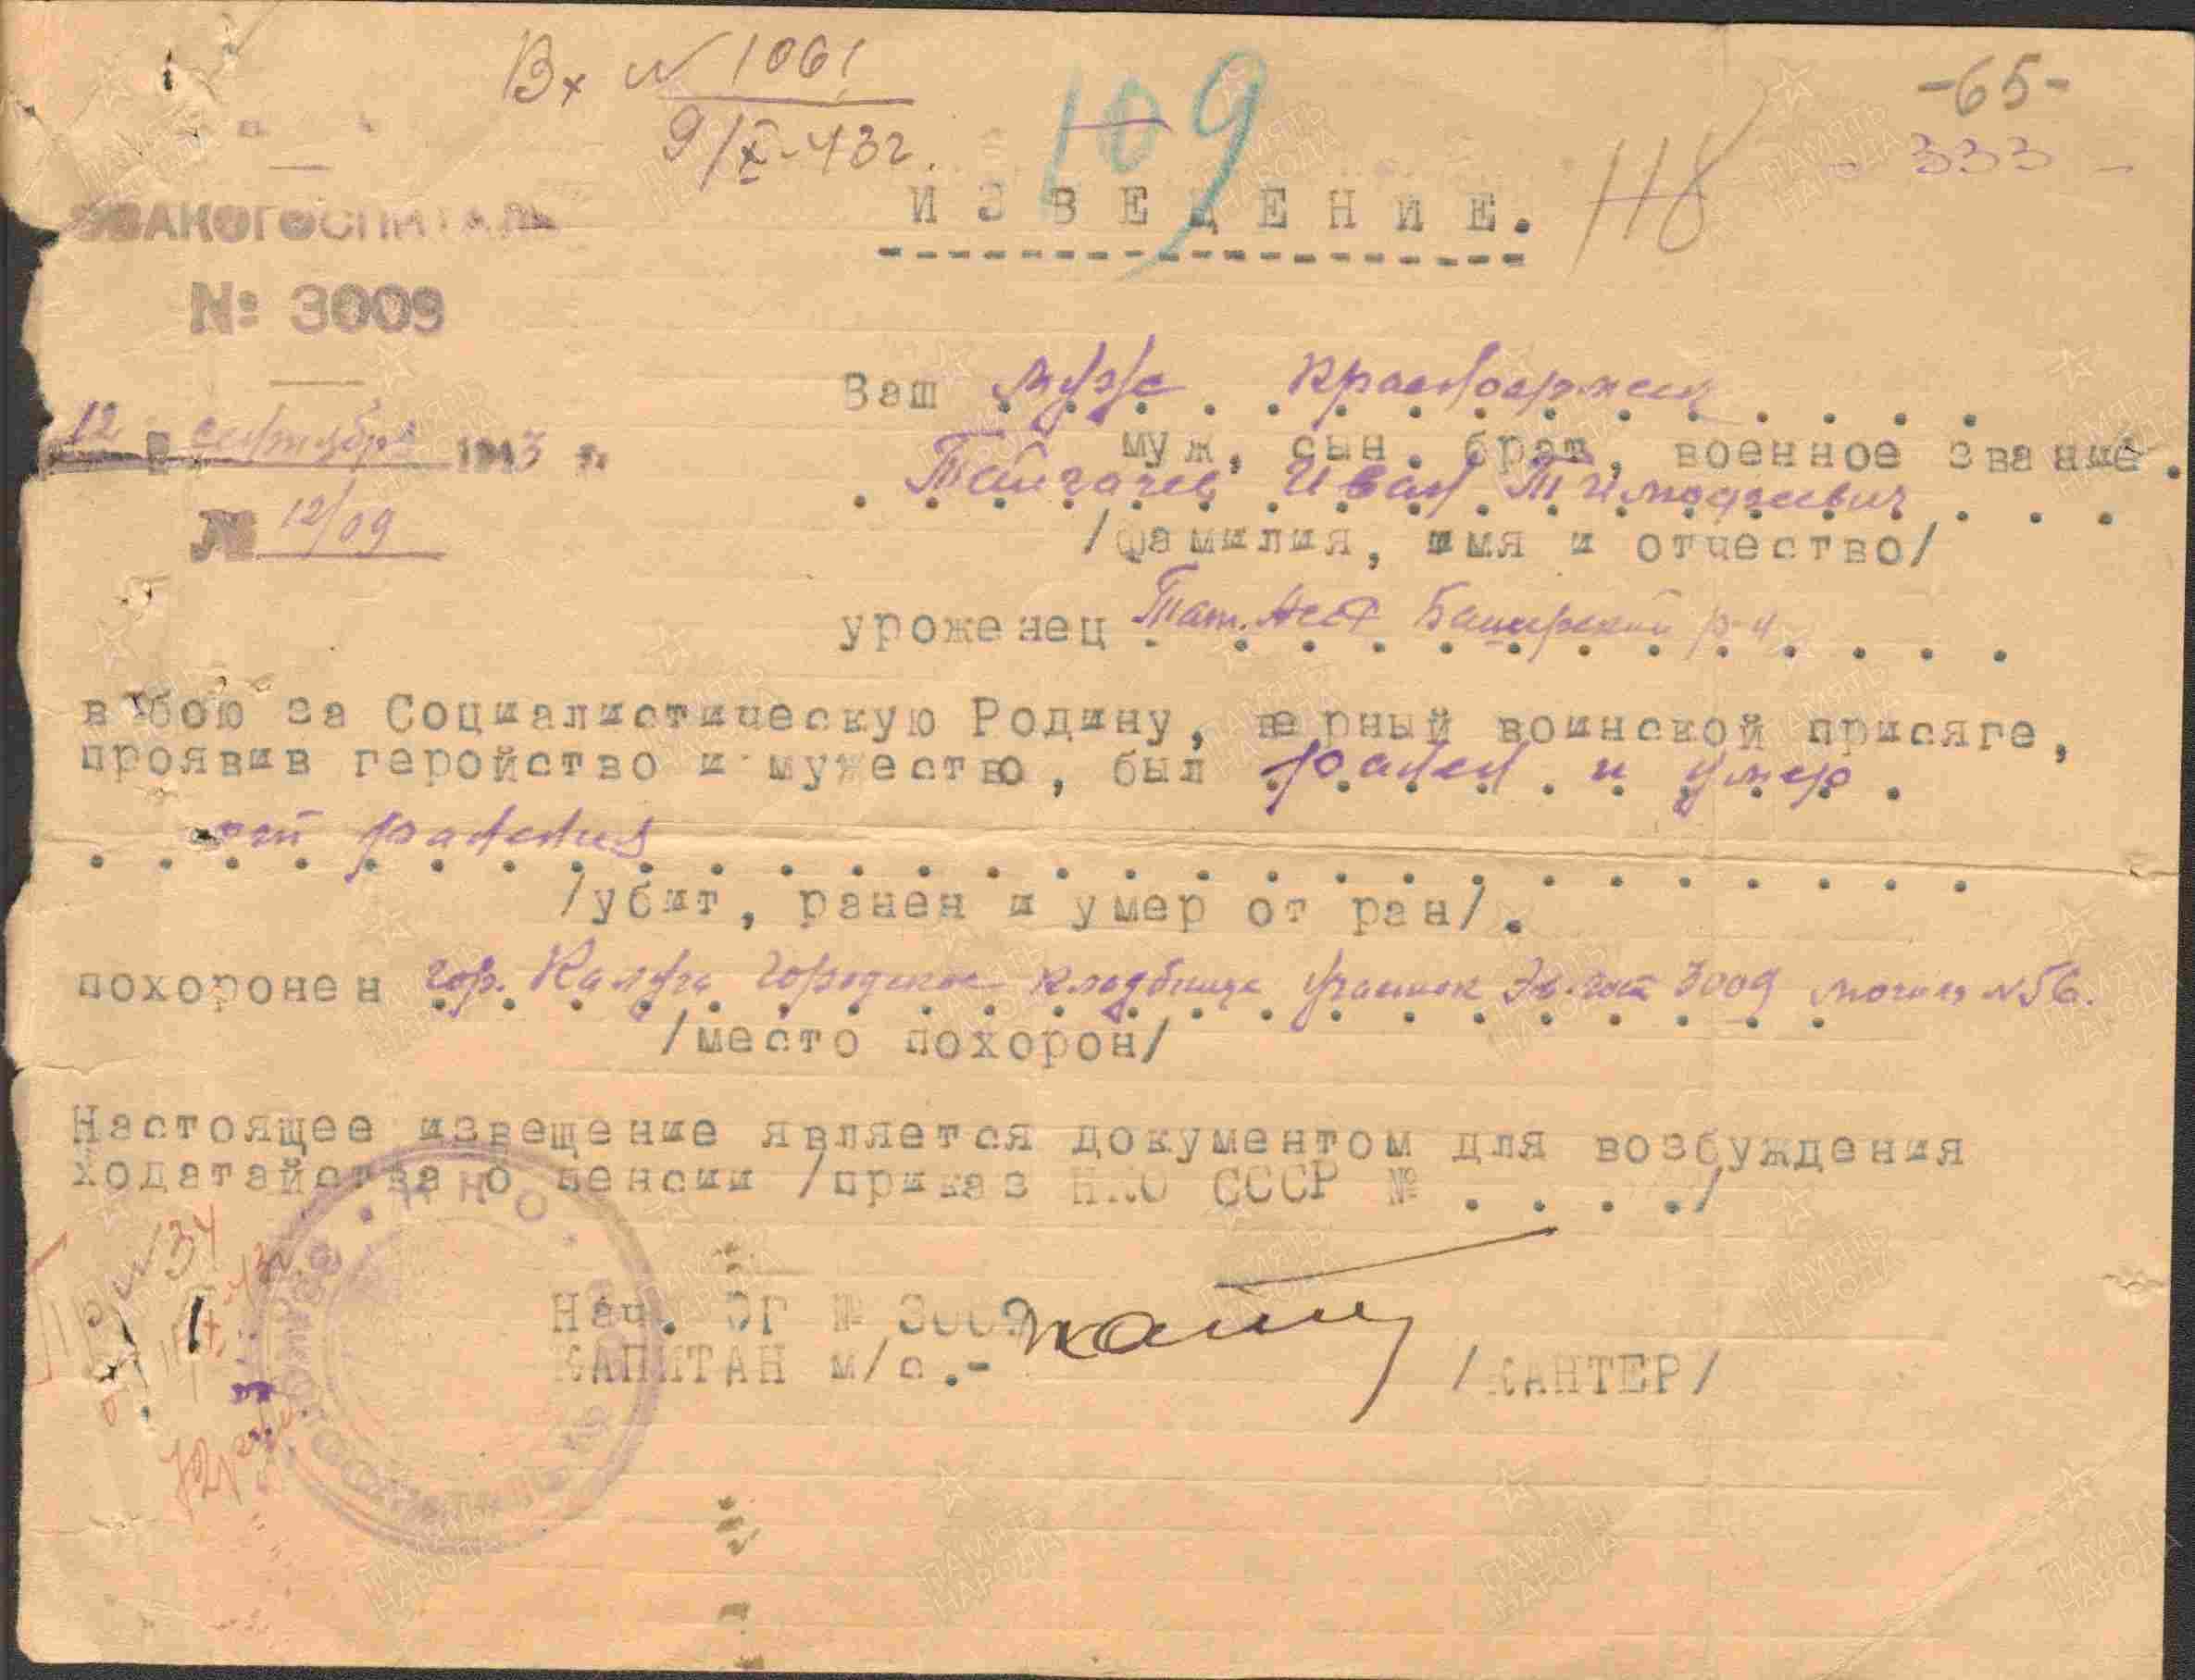 Вх № 1061
9/X-43г.
109
118
-65-
- 333 -
ЭВАКОГОСПИТАЛЬ
№ 3009
12 сентября 1943 г.
№ 12/09
ИЗВЕЩЕНИЕ.
Ваш муж красноармеец
муж, сын, брат, военное звание.
Иван Тимофеевич
/фамилия, имя и отчество/
уроженец Тат. АССР р-н
в бою за Социалистическую Родину, верный воинской присяге,
проявив геройство и мужество, был ранен и умер
ранения
/убит, ранен и умер от ран/.
похоронен гор. Калуга городское кладбище участок Эв.госп 3009 могила №56.
/место похорон/
Настоящее извещение является документом для возбуждения
ходатайства о пенсии /приказ НКО СССР № . . . ./
Нач. ЭГ № 3009
КАПИТАН м/с.-
/КАНТЕР/
№ 34
НКО
ПАМЯТЬ НАРОДА